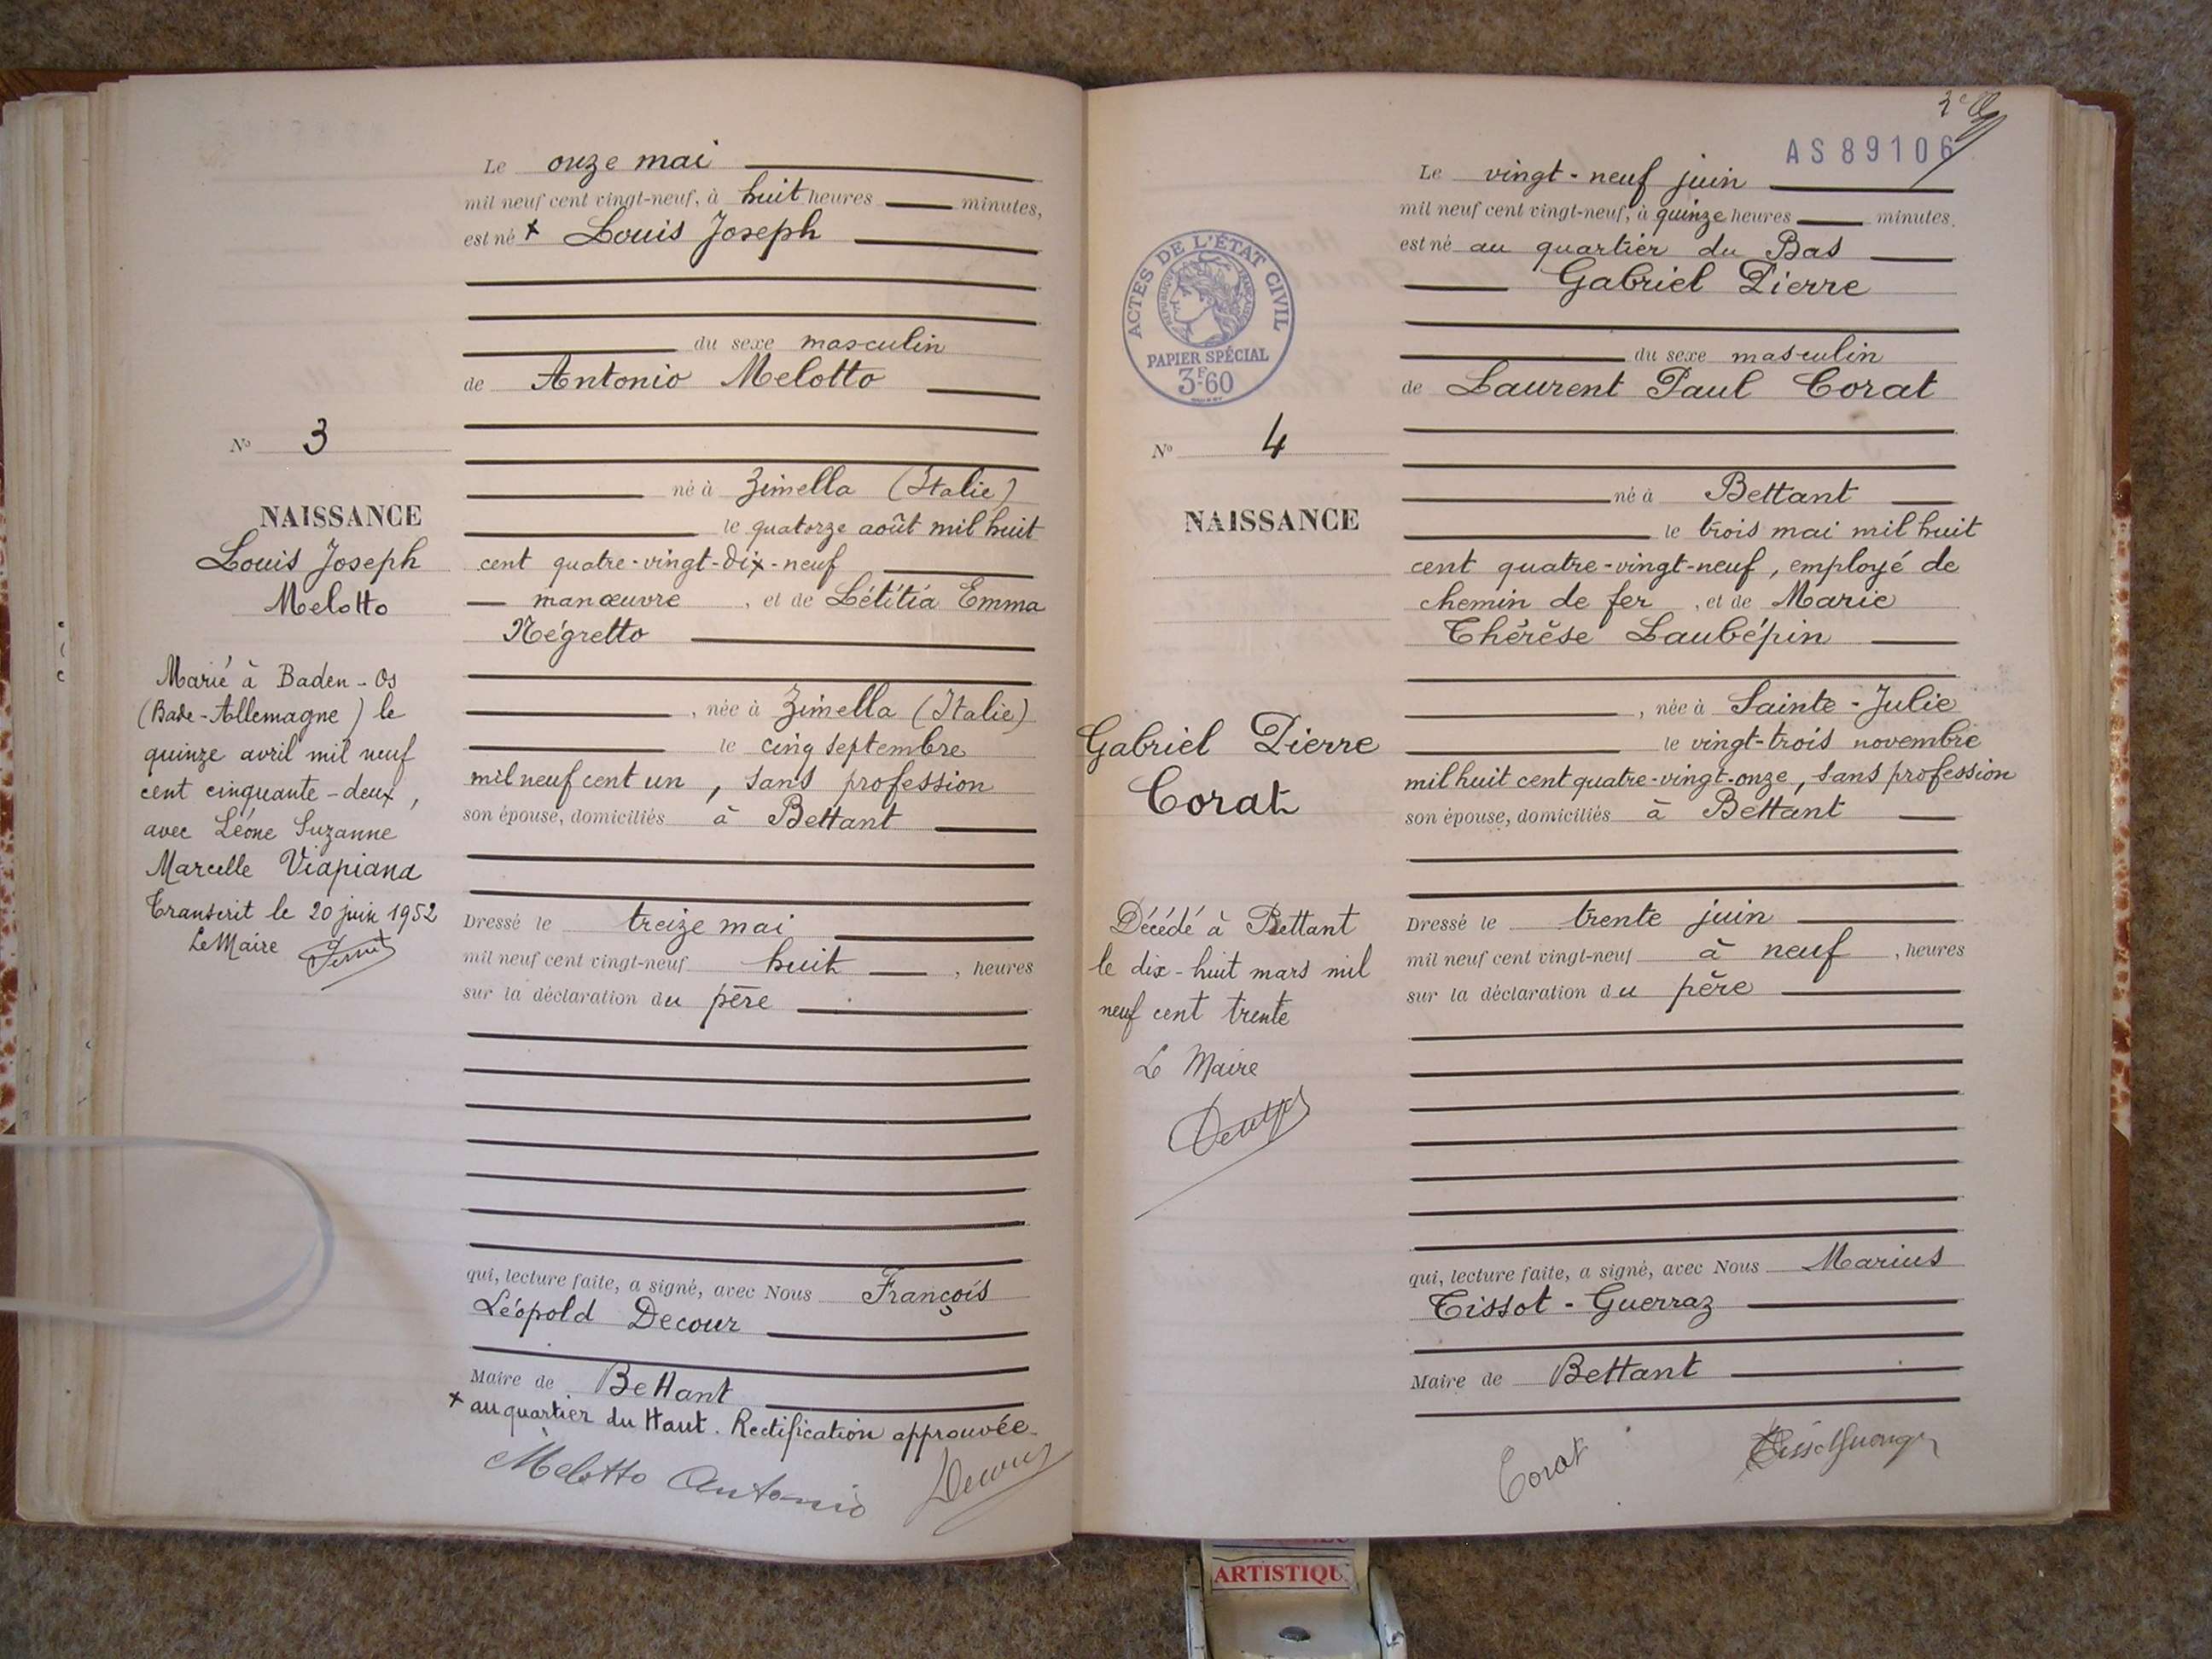 Le onze mai
mil neuf cent vingt-neuf, à huit heures minutes,
est né + Louis Joseph
du sexe masculin
de Antonio Melotto
né à Zimella (Italie)
le quatorze août mil huit
cent quatre-vingt-dix-neuf
manœuvre, et de Létitia Emma
Négretto
, née à Zimella (Italie)
le cinq septembre
mil neuf cent un, sans profession
son épouse, domiciliés à Bettant
Dressé le treize mai
mil neuf cent vingt-neuf huit, heures
sur la déclaration du père
qui, lecture faite, a signé, avec Nous François
Léopold Decour
Maire de Bettant
+ au quartier du Haut. Rectification approuvée
Melotto Antonio
Decour
No 3
NAISSANCE
Louis Joseph
Melotto
Marié à Baden-Os
(Bade-Allemagne) le
quinze avril mil neuf
cent cinquante-deux,
avec Léone Suzanne
Marcelle Viapiana
Transcrit le 20 juin 1952
Le Maire
AS 89106
Le vingt-neuf juin
mil neuf cent vingt-neuf, à quinze heures minutes.
est né au quartier du Bas
Gabriel Pierre
du sexe masculin
de Laurent Paul Corat
né à Bettant
le trois mai mil huit
cent quatre-vingt-neuf, employé de
chemin de fer, et de Marie
Thérèse Laubépin
, née à Sainte-Julie
le vingt-trois novembre
mil huit cent quatre-vingt-onze, sans profession
son épouse, domiciliés à Bettant
Dressé le trente juin
mil neuf cent vingt-neuf à neuf, heures
sur la déclaration du père
qui, lecture faite, a signé, avec Nous Marius
Tissot-Guerraz
Maire de Bettant
Corat
ACTES DE L'ÉTAT CIVIL
RÉPUBLIQUE FRANÇAISE
PAPIER SPÉCIAL
3F60
No 4
NAISSANCE
Gabriel Pierre
Corat
Décédé à Bettant
le dix-huit mars mil
neuf cent trente
Le Maire
ARTISTIQU